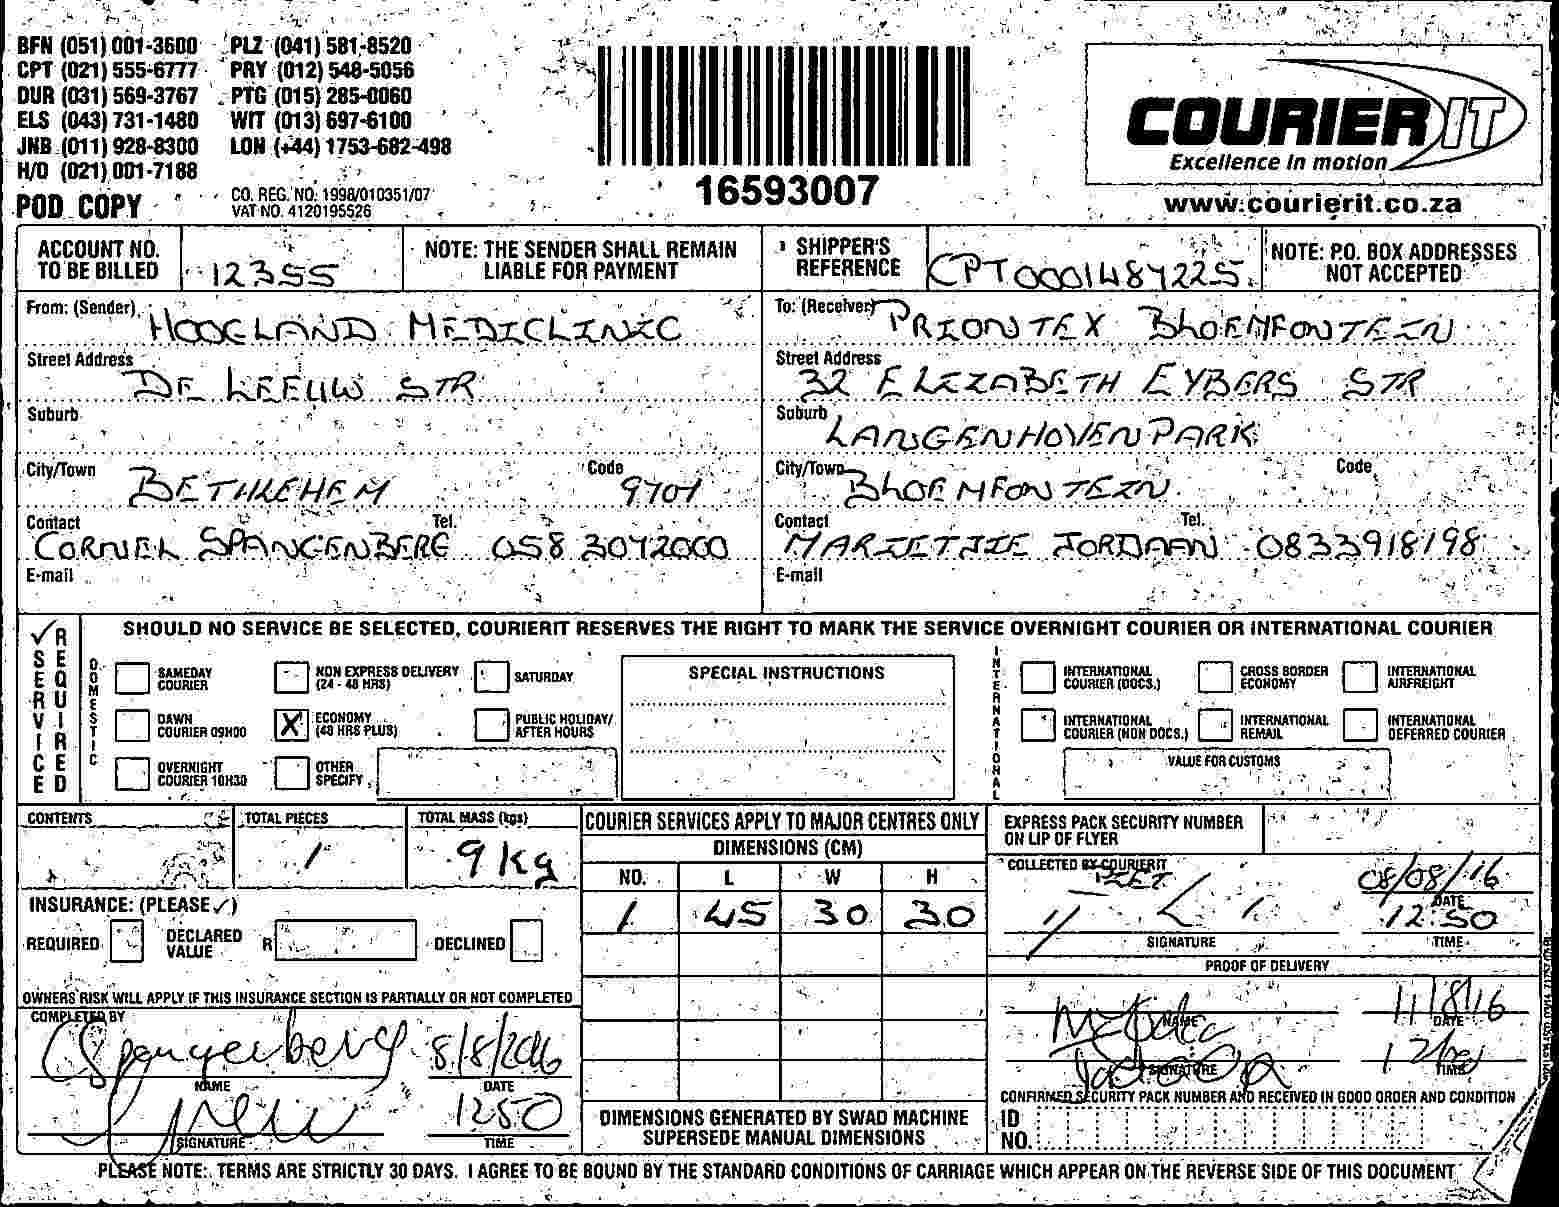 BFN (051) 001-3600 PLZ (041) 581-8520
CPT (021) 555-6777 PRY (012) 548-5056
DUR (031) 569-3767 PTG (015) 285-0060
ELS (043) 731-1480 WIT (013) 697-6100
JNB (011) 928-8300 LON (+44) 1753-682-498
H/O (021) 001-7188
POD COPY
CO. REG. NO: 1998/010351/07
VAT NO. 4120195526
16593007
COURIER IT
Excellence in motion
www.courierit.co.za
ACCOUNT NO. TO BE BILLED 12355
NOTE: THE SENDER SHALL REMAIN LIABLE FOR PAYMENT
SHIPPER'S REFERENCE CPT00014847225
NOTE: P.O. BOX ADDRESSES NOT ACCEPTED
From: (Sender) HOOGLAND MEDICLINIC
Street Address DE LEEUW STR
Suburb
City/Town BETHLEHEM Code 9701
Contact CORNEL SPANGENBERG Tel. 058 3042000
E-mail
To: (Receiver) PRIONTEX BLOEMFONTEIN
Street Address 32 ELIZABETH EYBERS STR
Suburb LANGENHOVEN PARK
City/Town BLOEMFONTEIN Code
Contact MARIETJIE JORDAAN Tel. 0833918198
E-mail
SERVICE REQUIRED
SHOULD NO SERVICE BE SELECTED, COURIERIT RESERVES THE RIGHT TO MARK THE SERVICE OVERNIGHT COURIER OR INTERNATIONAL COURIER
DOMESTIC
SAMEDAY COURIER
NON EXPRESS DELIVERY (24 - 48 HRS)
SATURDAY
DAWN COURIER 09H00
X ECONOMY (48 HRS PLUS)
PUBLIC HOLIDAY/ AFTER HOURS
OVERNIGHT COURIER 10H30
OTHER SPECIFY
SPECIAL INSTRUCTIONS
INTERNATIONAL
INTERNATIONAL COURIER (DOCS.)
CROSS BORDER ECONOMY
INTERNATIONAL AIRFREIGHT
INTERNATIONAL COURIER (NON DOCS.)
INTERNATIONAL REMAIL
INTERNATIONAL DEFERRED COURIER
VALUE FOR CUSTOMS
CONTENTS
TOTAL PIECES 1
TOTAL MASS (kgs) 9 kg
INSURANCE: (PLEASE ✓)
REQUIRED DECLARED VALUE R DECLINED
OWNERS RISK WILL APPLY IF THIS INSURANCE SECTION IS PARTIALLY OR NOT COMPLETED
COMPLETED BY
CSpangenberg 8/8/2016
NAME DATE
1250
SIGNATURE TIME
COURIER SERVICES APPLY TO MAJOR CENTRES ONLY
DIMENSIONS (CM)
NO. L W H
1 45 30 30
DIMENSIONS GENERATED BY SWAD MACHINE
SUPERSEDE MANUAL DIMENSIONS
EXPRESS PACK SECURITY NUMBER ON LIP OF FLYER
COLLECTED BY COURIERIT
08/08/16
DATE
12:50
SIGNATURE TIME
PROOF OF DELIVERY
11/8/16
NAME DATE
SIGNATURE TIME
CONFIRMED SECURITY PACK NUMBER AND RECEIVED IN GOOD ORDER AND CONDITION
ID NO.
PLEASE NOTE: TERMS ARE STRICTLY 30 DAYS. I AGREE TO BE BOUND BY THE STANDARD CONDITIONS OF CARRIAGE WHICH APPEAR ON THE REVERSE SIDE OF THIS DOCUMENT